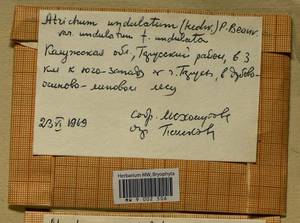 Atrichum undulatum (Hedw.) P. Beauv.
var. undulatum f. undulata
Калужская обл., Тарусский район, в 3
км к юго-западу от г. Таруса, в дубово-
осиново-липовом лесу
23 VI 1969
собр.
опр.
Herbarium MW, Bryophyta
MW 9 002 556